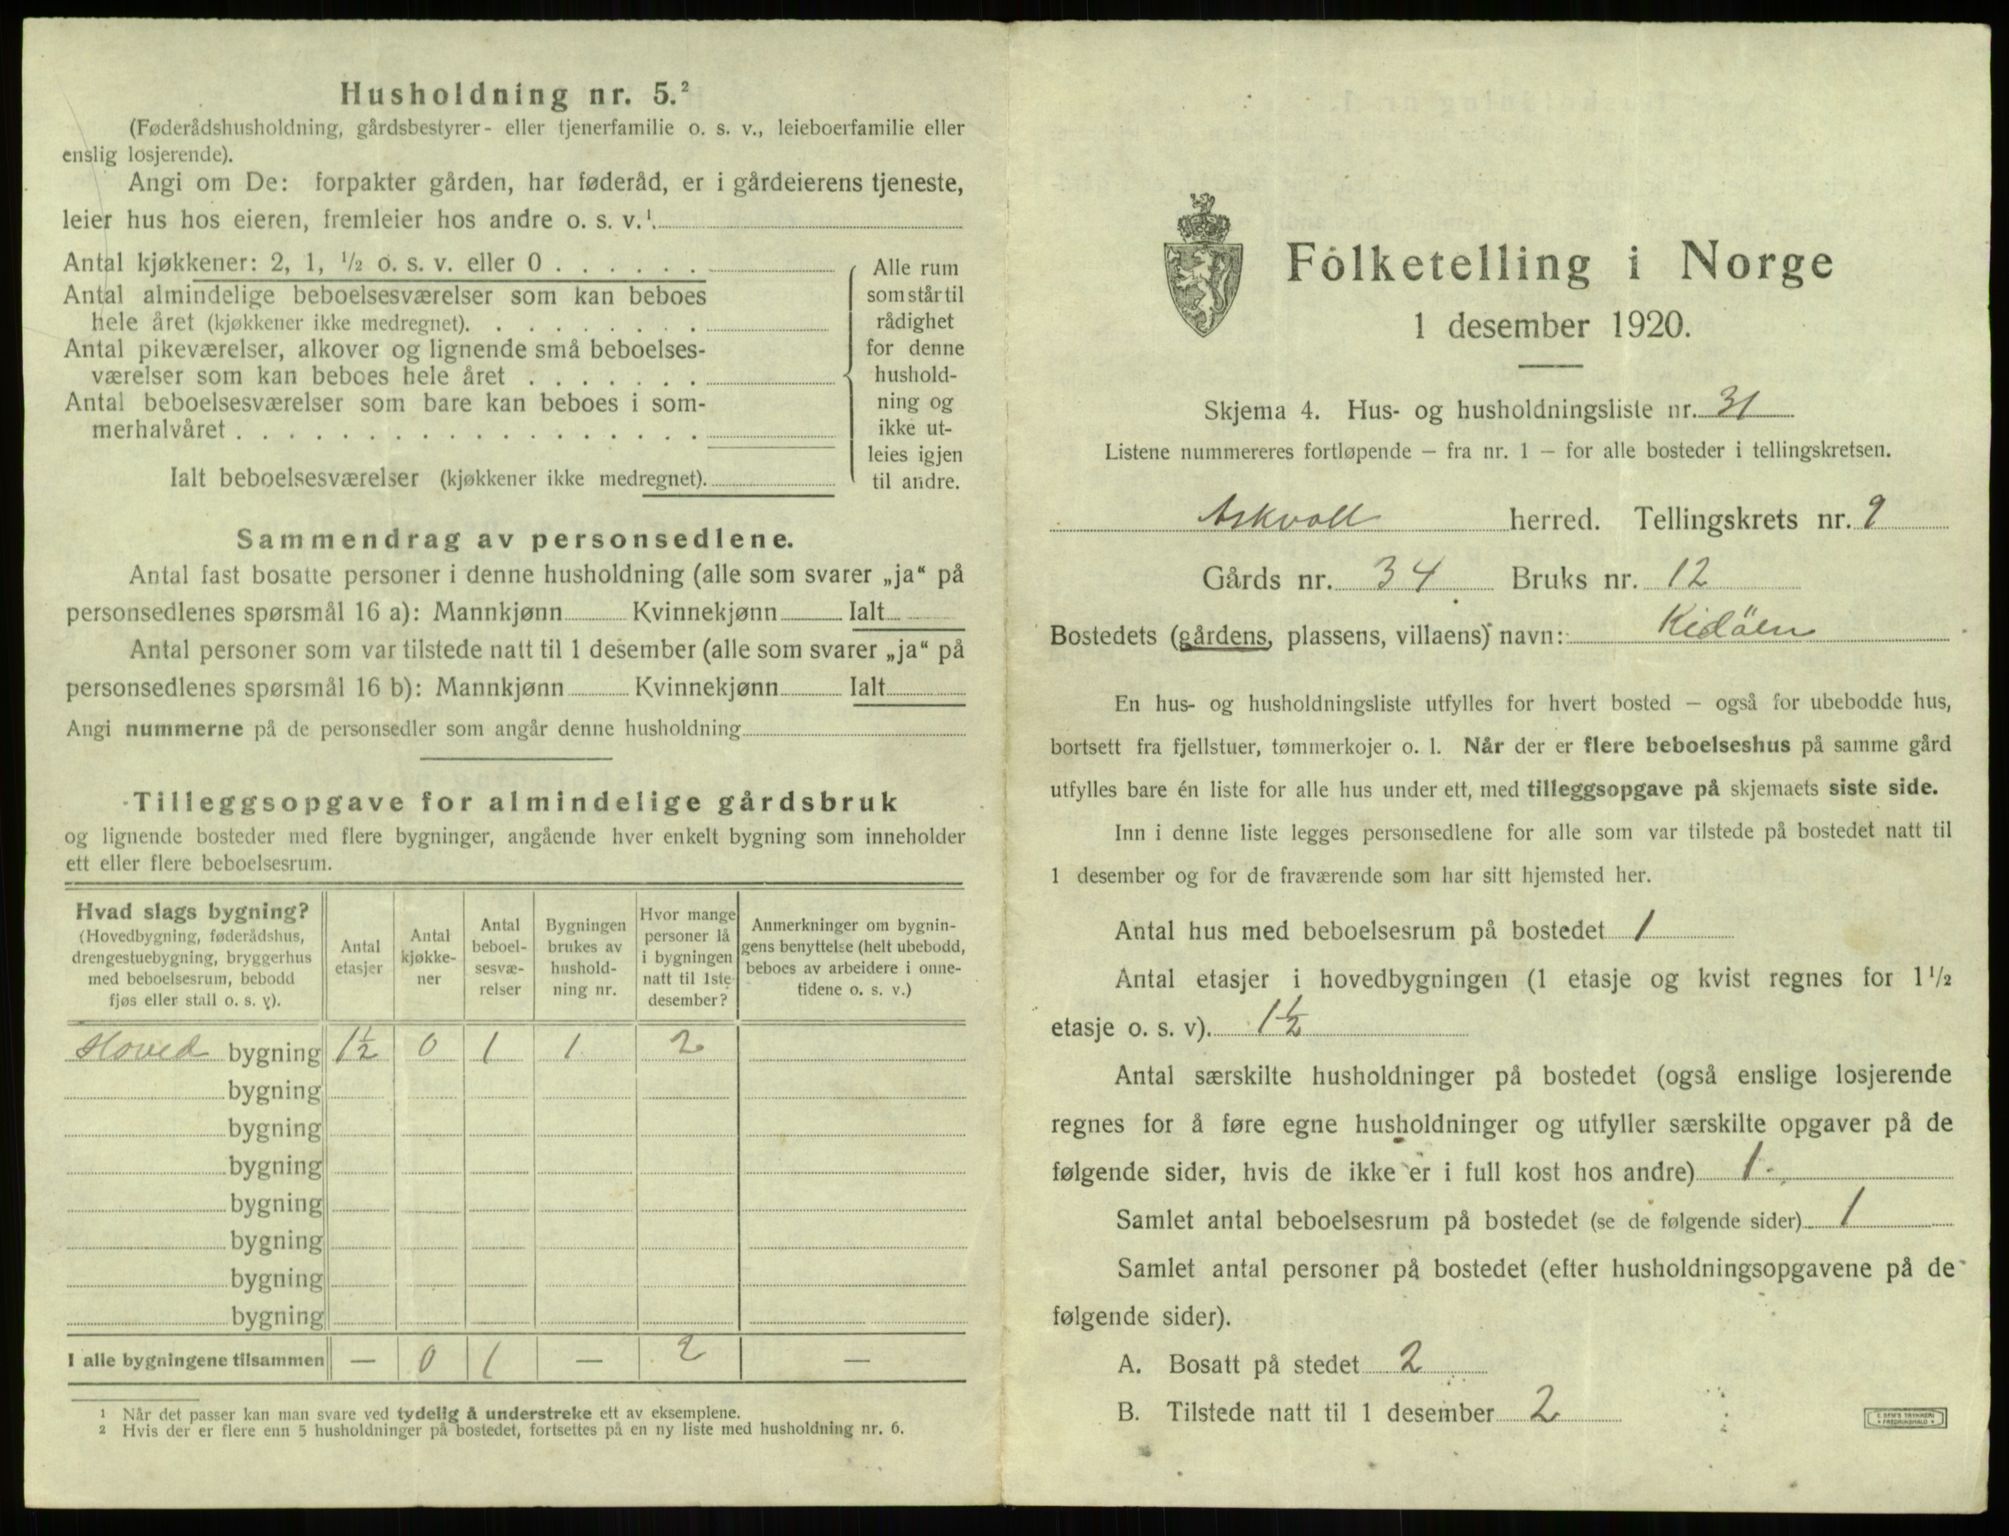 Husholdning nr. 5.²
(Føderådshusholdning, gårdsbestyrer- eller tjenerfamilie o. s. v., leieboerfamilie eller
enslig losjerende).
Angi om De: forpakter gården, har føderåd, er i gårdeierens tjeneste,
leier hus hos eieren, fremleier hos andre o. s. v.¹
Antal kjøkkener: 2, 1, ½ o. s. v. eller 0 . . . . . .
Antal almindelige beboelsesværelser som kan beboes
hele året (kjøkkener ikke medregnet). . . . . . . . .
Antal pikeværelser, alkover og lignende små beboelses-
værelser som kan beboes hele året . . . . . . .
Antal beboelsesværelser som bare kan beboes i som-
merhalvåret . . . . . . . . . . . . . . . . . .
Ialt beboelsesværelser (kjøkkener ikke medregnet).
Alle rum
som står til
rådighet
for denne
hushold-
ning og
ikke ut-
leies igjen
til andre.
Sammendrag av personsedlene.
Antal fast bosatte personer i denne husholdning (alle som svarer „ja“ på
personsedlenes spørsmål 16 a): Mannkjønn Kvinnekjønn Ialt
Antal personer som var tilstede natt til 1 desember (alle som svarer „ja“ på
personsedlenes spørsmål 16 b): Mannkjønn Kvinnekjønn Ialt
Angi nummerne på de personsedler som angår denne husholdning
Tilleggsopgave for almindelige gårdsbruk
og lignende bosteder med flere bygninger, angående hver enkelt bygning som inneholder
ett eller flere beboelsesrum.
Hvad slags bygning?
(Hovedbygning, føderådshus,
drengestuebygning, bryggerhus
med beboelsesrum, bebodd
fjøs eller stall o. s. v).
Antal
etasjer
Antal
kjøkke-
ner
Antal
beboel-
sesvæ-
relser
Bygningen
brukes av
hushold-
ning nr.
Hvor mange
personer lå
i bygningen
natt til 1ste
desember?
Anmerkninger om bygnin-
gens benyttelse (helt ubebodd,
beboes av arbeidere i onne-
tidene o. s. v.)
Hoved bygning 1½ 0 1 1 2
bygning
bygning
bygning
bygning
bygning
bygning
bygning
I alle bygningene tilsammen — 0 1 — 2 —
¹ Når det passer kan man svare ved tydelig å understreke ett av eksemplene.
² Hvis der er flere enn 5 husholdninger på bostedet, fortsettes på en ny liste med husholdning nr. 6.
Folketelling i Norge
1 desember 1920.
Skjema 4. Hus- og husholdningsliste nr. 31
Listene nummereres fortløpende — fra nr. 1 — for alle bosteder i tellingskretsen.
Askvoll herred. Tellingskrets nr. 9
Gårds nr. 34 Bruks nr. 12
Bostedets (gårdens, plassens, villaens) navn: Kidöen
En hus- og husholdningsliste utfylles for hvert bosted — også for ubebodde hus,
bortsett fra fjellstuer, tømmerkojer o. l. Når der er flere beboelseshus på samme gård
utfylles bare én liste for alle hus under ett, med tilleggsopgave på skjemaets siste side.
Inn i denne liste legges personsedlene for alle som var tilstede på bostedet natt til
1 desember og for de fraværende som har sitt hjemsted her.
Antal hus med beboelsesrum på bostedet 1
Antal etasjer i hovedbygningen (1 etasje og kvist regnes for 1½
etasje o. s. v). 1½
Antal særskilte husholdninger på bostedet (også enslige losjerende
regnes for å føre egne husholdninger og utfyller særskilte opgaver på de
følgende sider, hvis de ikke er i full kost hos andre) 1.
Samlet antal beboelsesrum på bostedet (se de følgende sider) 1
Samlet antal personer på bostedet (efter husholdningsopgavene på de
følgende sider).
A. Bosatt på stedet 2
B. Tilstede natt til 1 desember 2